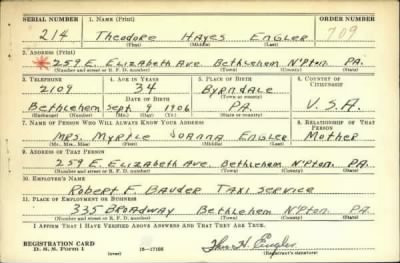 SERIAL NUMBER 1. NAME (Print) ORDER NUMBER
214 Theodore Hayes Engler 709
(First) (Middle) (Last)
2. ADDRESS (Print)
259 E. Elizabeth Ave. Bethlehem N'Pton. PA.
(Number and street or R. F. D. number) (Town) (County) (State)
3. TELEPHONE 4. AGE IN YEARS 5. PLACE OF BIRTH 6. COUNTRY OF CITIZENSHIP
2109 34 Byrndale
DATE OF BIRTH (Town or county)
Bethlehem Sept 9 1906 PA. U.S.A.
(Exchange) (Number) (Mo.) (Day) (Yr.) (State or country)
7. NAME OF PERSON WHO WILL ALWAYS KNOW YOUR ADDRESS 8. RELATIONSHIP OF THAT PERSON
Mrs. Myrtle Joanna Engler Mother
(Mr., Mrs., Miss) (First) (Middle) (Last)
9. ADDRESS OF THAT PERSON
259 E. Elizabeth Ave. Bethlehem N'Pton. PA.
(Number and street or R. F. D. number) (Town) (County) (State)
10. EMPLOYER'S NAME
Robert F. Bauder Taxi Service
11. PLACE OF EMPLOYMENT OR BUSINESS
335 Broadway Bethlehem N'Pton. PA.
(Number and street or R. F. D. number) (Town) (County) (State)
I AFFIRM THAT I HAVE VERIFIED ABOVE ANSWERS AND THAT THEY ARE TRUE.
REGISTRATION CARD
D. S. S. Form 1 16-17105 Theo. H. Engler
(Registrant's signature)